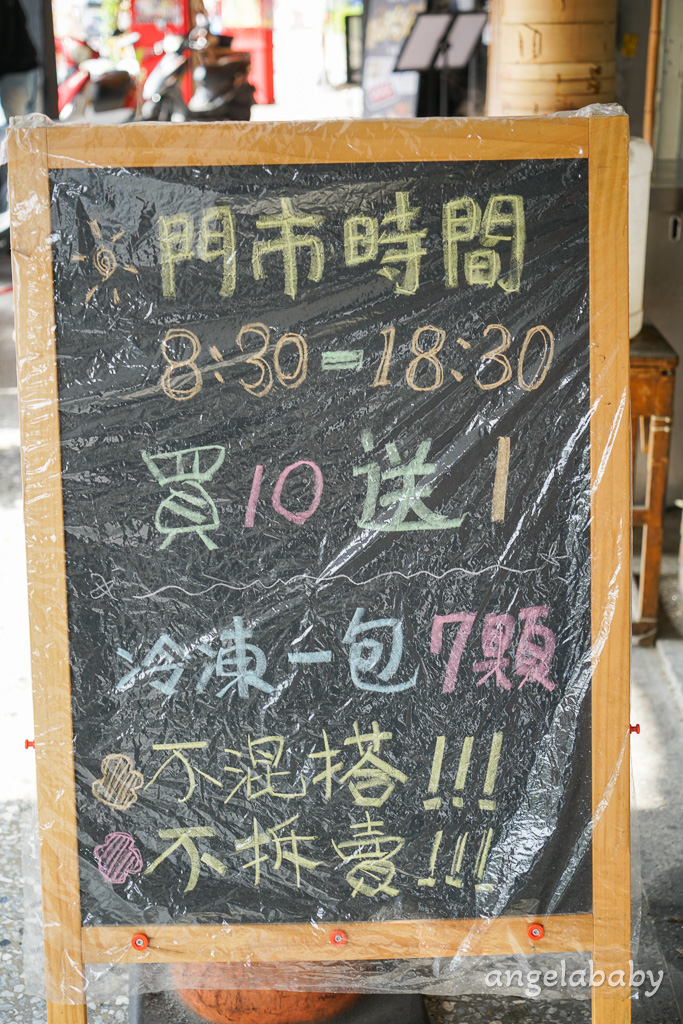 門市時間
8:30-18:30
買10送1
冷凍一包7顆
不混搭!!!
不拆賣!!!
angelababy